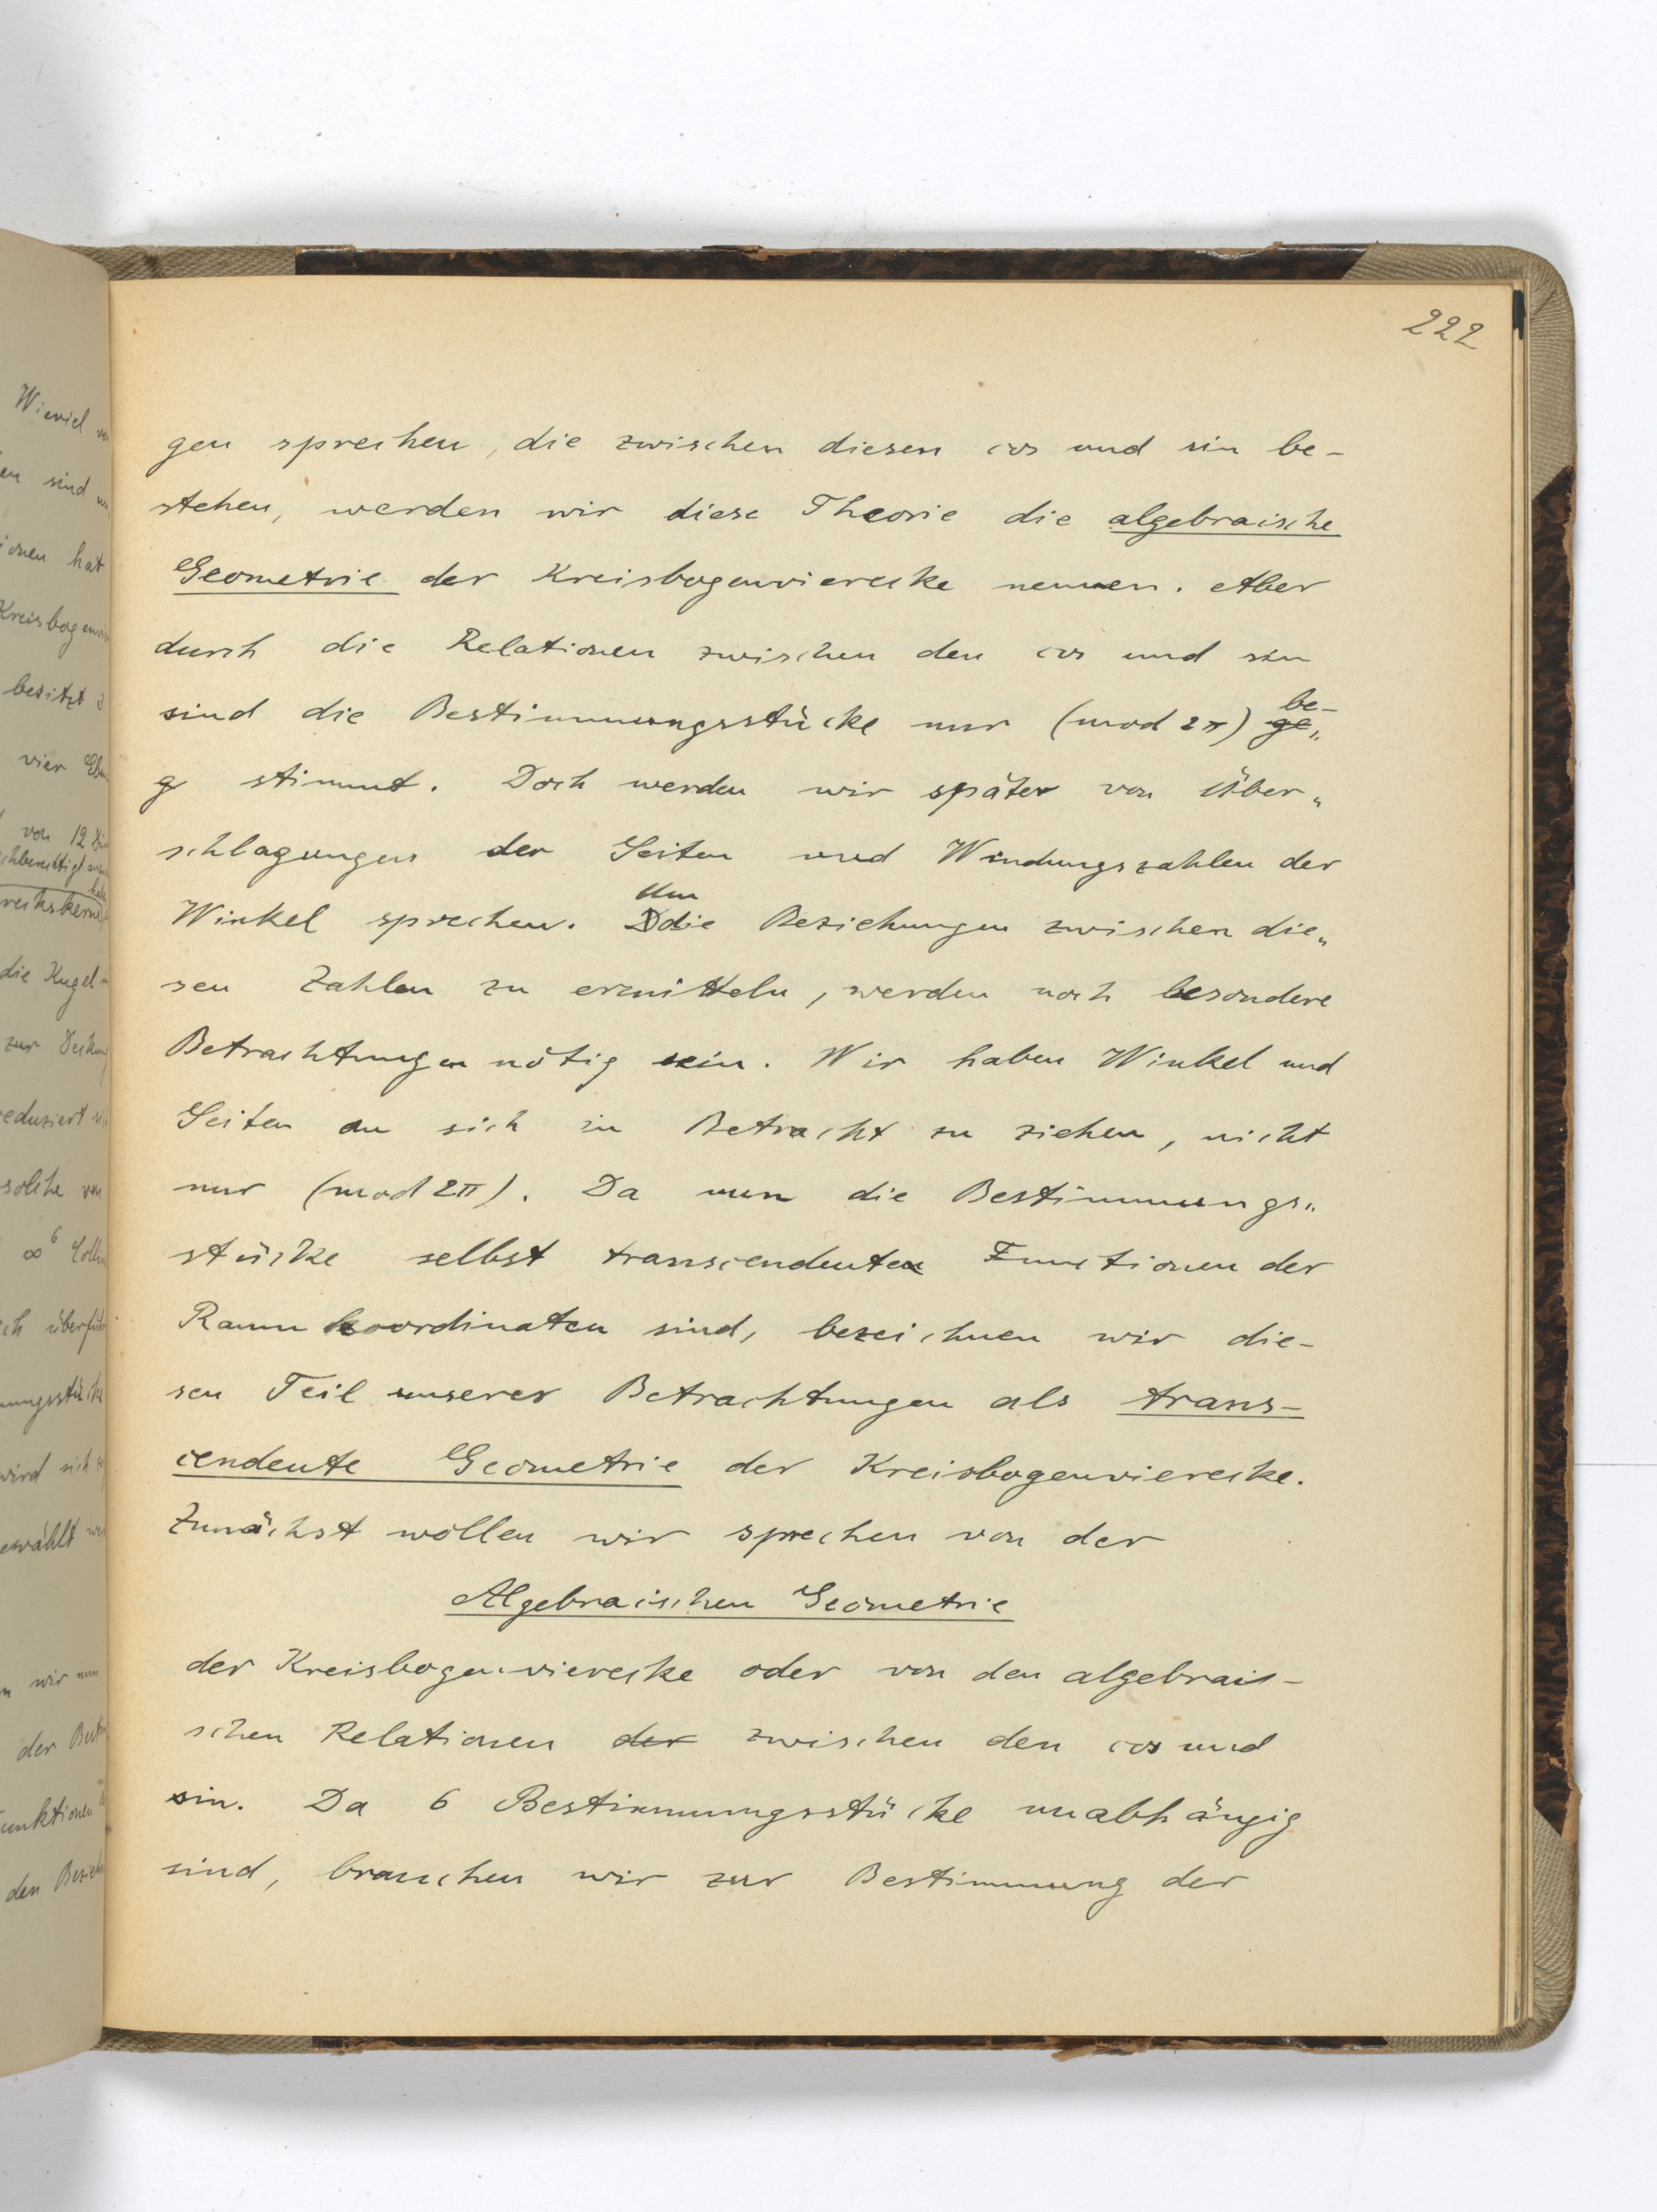 222
gen sprechen, die zwischen diesen cos und sin be-
stehen, werden wir diese Theorie die algebraische
Geometrie der Kreisbogenvierecke nennen. Aber
durch die Relationen zwischen den cos und sin
be-
sind die Bestimmungsstücke nur (mod 2π) ge„
g stimmt. Doch werden wir später von Über„
schlagungen der Seiten und Windungszahlen der
Um
Winkel sprechen. Ddie Beziehungen zwischen die„
sen Zahlen zu ermitteln, werden noch besondere
Betrachtungen nötig sein. Wir haben Winkel und
Seiten an sich in Betracht zu ziehen, nicht
nur (mod 2π). Da nun die Bestimmungs„
stücke selbst transcendente Functionen der
Raumkoordinaten sind, bezeichnen wir die-
sen Teil unserer Betrachtungen als trans-
cendente Geometrie der Kreisbogenvierecke.
Zunächst wollen wir sprechen von der
Algebraischen Geometrie
der Kreisbogenvierecke oder von den algebrais-
schen Relationen der zwischen den cos und
sin. Da 6 Bestimmungsstücke unabhängig
sind, brauchen wir zur Bestimmung der
Wieviel
sind
ionen hat
Kreisbogenvi
besitzt
vier
von 12
die Kugel
zur Deckung
reduziert
solche von
∞⁶
ich überfüh
mungsstücke
wird sich
ewählt
wir nun
der
unktionen
den